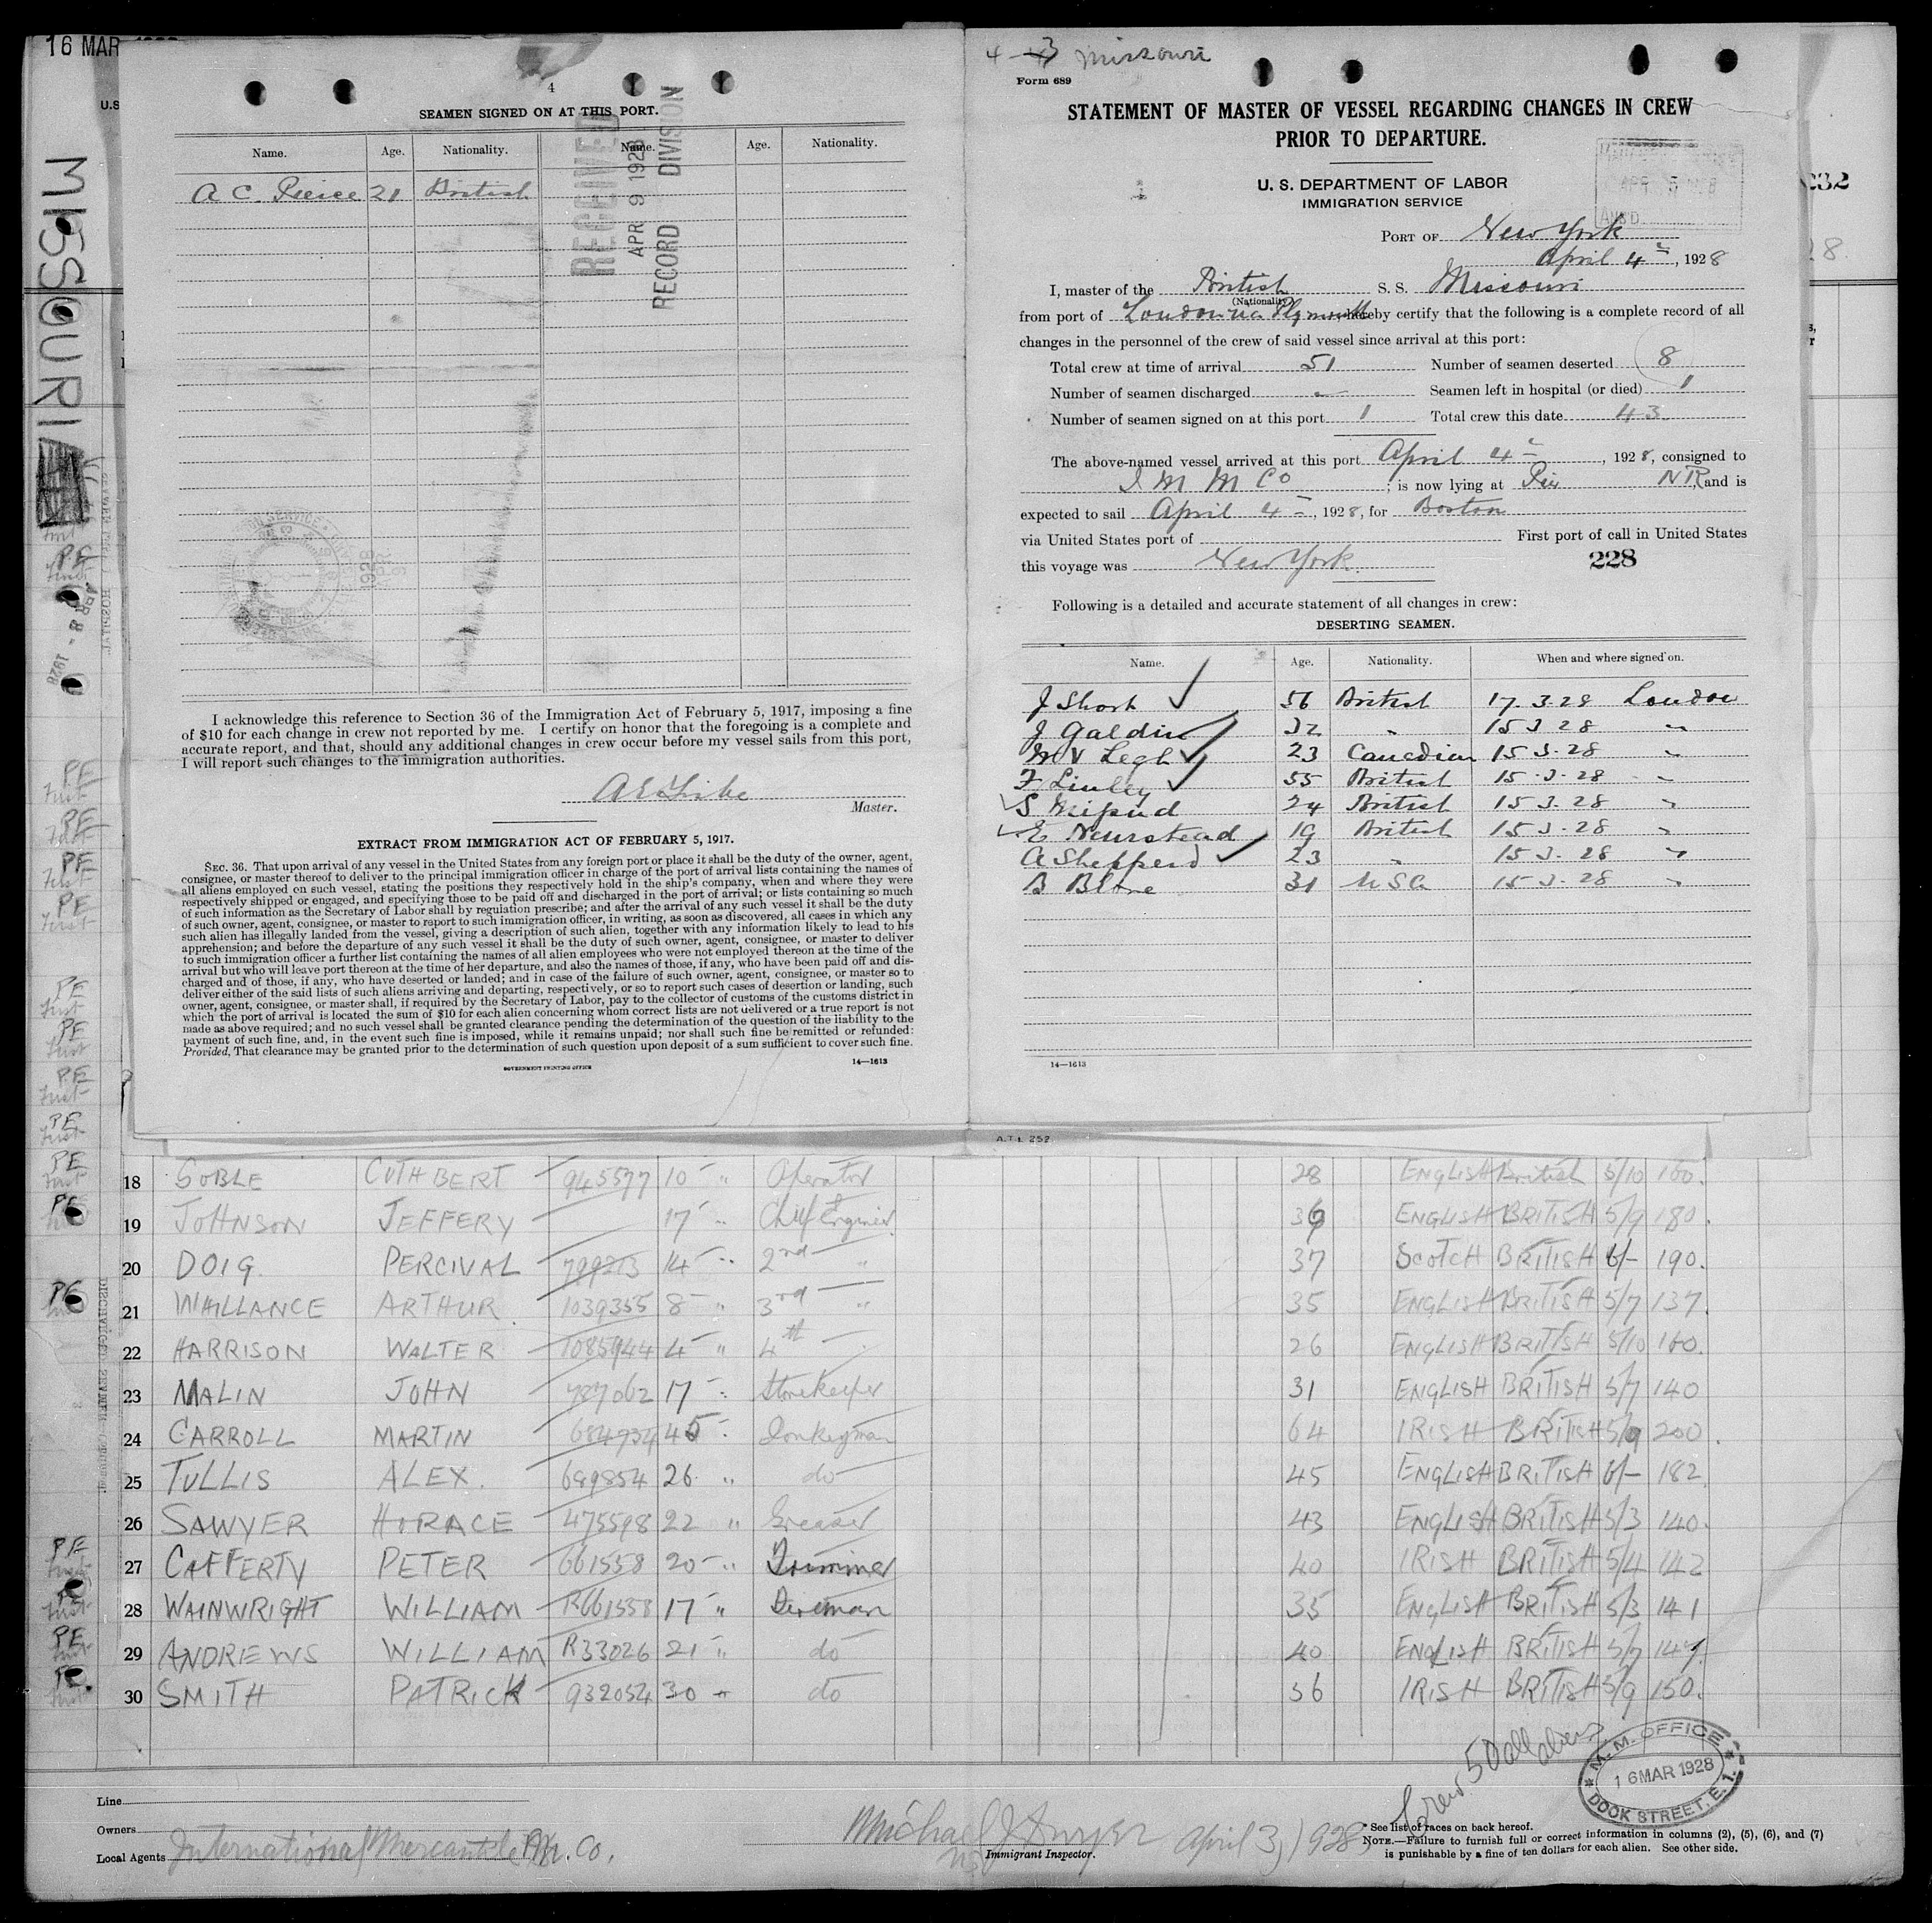 16 MAR
U.S
MISSOURI
4
SEAMEN SIGNED ON AT THIS PORT.
Name. Age. Nationality. Name. Age. Nationality.
A C. Peirce 21 British
RECEIVED
APR 9 1928
RECORD DIVISION
I acknowledge this reference to Section 36 of the Immigration Act of February 5, 1917, imposing a fine
of $10 for each change in crew not reported by me. I certify on honor that the foregoing is a complete and
accurate report, and that, should any additional changes in crew occur before my vessel sails from this port,
I will report such changes to the immigration authorities.
Master.
EXTRACT FROM IMMIGRATION ACT OF FEBRUARY 5, 1917.
SEC. 36. That upon arrival of any vessel in the United States from any foreign port or place it shall be the duty of the owner, agent,
consignee, or master thereof to deliver to the principal immigration officer in charge of the port of arrival lists containing the names of
all aliens employed on such vessel, stating the positions they respectively hold in the ship's company, when and where they were
respectively shipped or engaged, and specifying those to be paid off and discharged in the port of arrival; or lists containing so much
of such information as the Secretary of Labor shall by regulation prescribe; and after the arrival of any such vessel it shall be the duty
of such owner, agent, consignee, or master to report to such immigration officer, in writing, as soon as discovered, all cases in which any
such alien has illegally landed from the vessel, giving a description of such alien, together with any information likely to lead to his
apprehension; and before the departure of any such vessel it shall be the duty of such owner, agent, consignee, or master to deliver
to such immigration officer a further list containing the names of all alien employees who were not employed thereon at the time of the
arrival but who will leave port thereon at the time of her departure, and also the names of those, if any, who have been paid off and dis-
charged and of those, if any, who have deserted or landed; and in case of the failure of such owner, agent, consignee, or master so to
deliver either of the said lists of such aliens arriving and departing, respectively, or so to report such cases of desertion or landing, such
owner, agent, consignee, or master shall, if required by the Secretary of Labor, pay to the collector of customs of the customs district in
which the port of arrival is located the sum of $10 for each alien concerning whom correct lists are not delivered or a true report is not
made as above required; and no such vessel shall be granted clearance pending the determination of the question of the liability to the
payment of such fine, and, in the event such fine is imposed, while it remains unpaid; nor shall such fine be remitted or refunded:
Provided, That clearance may be granted prior to the determination of such question upon deposit of a sum sufficient to cover such fine.
GOVERNMENT PRINTING OFFICE 14—1613
4-3 Missouri
Form 689
STATEMENT OF MASTER OF VESSEL REGARDING CHANGES IN CREW
PRIOR TO DEPARTURE.
U. S. DEPARTMENT OF LABOR
IMMIGRATION SERVICE
232
PORT OF New York
April 4, 1928
I, master of the British S. S. Missouri
(Nationality)
from port of London via Plymouth hereby certify that the following is a complete record of all
changes in the personnel of the crew of said vessel since arrival at this port:
Total crew at time of arrival 51 Number of seamen deserted 8
Number of seamen discharged - Seamen left in hospital (or died) 1
Number of seamen signed on at this port 1 Total crew this date 43
The above-named vessel arrived at this port April 4, 1928, consigned to
I M M Co; is now lying at Pier N R, and is
expected to sail April 4, 1928, for Boston
via United States port of First port of call in United States
this voyage was New York.
228
Following is a detailed and accurate statement of all changes in crew:
DESERTING SEAMEN.
Name. Age. Nationality. When and where signed on.
J Short 56 British 17.3.28 London
J Galdin 32 " 15 3 28 "
W V Legh 23 Canadian 15.3.28 "
F Linley 55 British 15.3.28 "
S Mifsud 24 British 15 3.28 "
E Newstead 19 British 15 3.28 "
A Shepperd 23 " 15 3.28 "
B Blane 31 USA 15 3.28 "
14—1613
A.T.L 252
18 GOBLE CUTHBERT 945577 10 " Operator 28 ENGLISH British 5/10 160.
19 JOHNSON JEFFERY 17 " Chief Engineer 36 ENGLISH BRITISH 5/9 180.
20 DOIG. PERCIVAL 14 " 2nd " 37 SCOTCH BRITISH 6/- 190.
21 WAILLANCE ARTHUR. 1039355 8 " 3rd " 35 ENGLISH BRITISH 5/7 137.
22 HARRISON WALTER 1085944 4 " 4th 26 ENGLISH BRITISH 5/10 160.
23 MALIN JOHN 787062 17 " Storekeeper 31 ENGLISH BRITISH 5/7 140
24 CARROLL MARTIN 684734 45 " Donkeyman 64 IRISH BRITISH 5/9 200.
25 TULLIS ALEX. 689854 26 " do 45 ENGLISH BRITISH 6/- 182
26 SAWYER HORACE 475598 22 " Greaser 43 ENGLISH BRITISH 5/3 140.
27 CAFFERTY PETER 661558 20 " Trimmer 40 IRISH BRITISH 5/4 142
28 WAINWRIGHT WILLIAM R661558 17 " Fireman 35 ENGLISH BRITISH 5/3 141
29 ANDREWS WILLIAM R33026 21 " do 40 ENGLISH BRITISH 5/7 147.
30 SMITH PATRICK 932054 30 " do 56 IRISH BRITISH 5/9 150.
Crew 50 all aliens
M. M. OFFICE
16 MAR 1928
DOCK STREET, E. 1.
Line
Owners
Local Agents International Mercantile Mar. Co.
Michael J Dwyer April 3, 1928
Immigrant Inspector.
* See list of races on back hereof.
NOTE.—Failure to furnish full or correct information in columns (2), (5), (6), and (7)
is punishable by a fine of ten dollars for each alien. See other side.